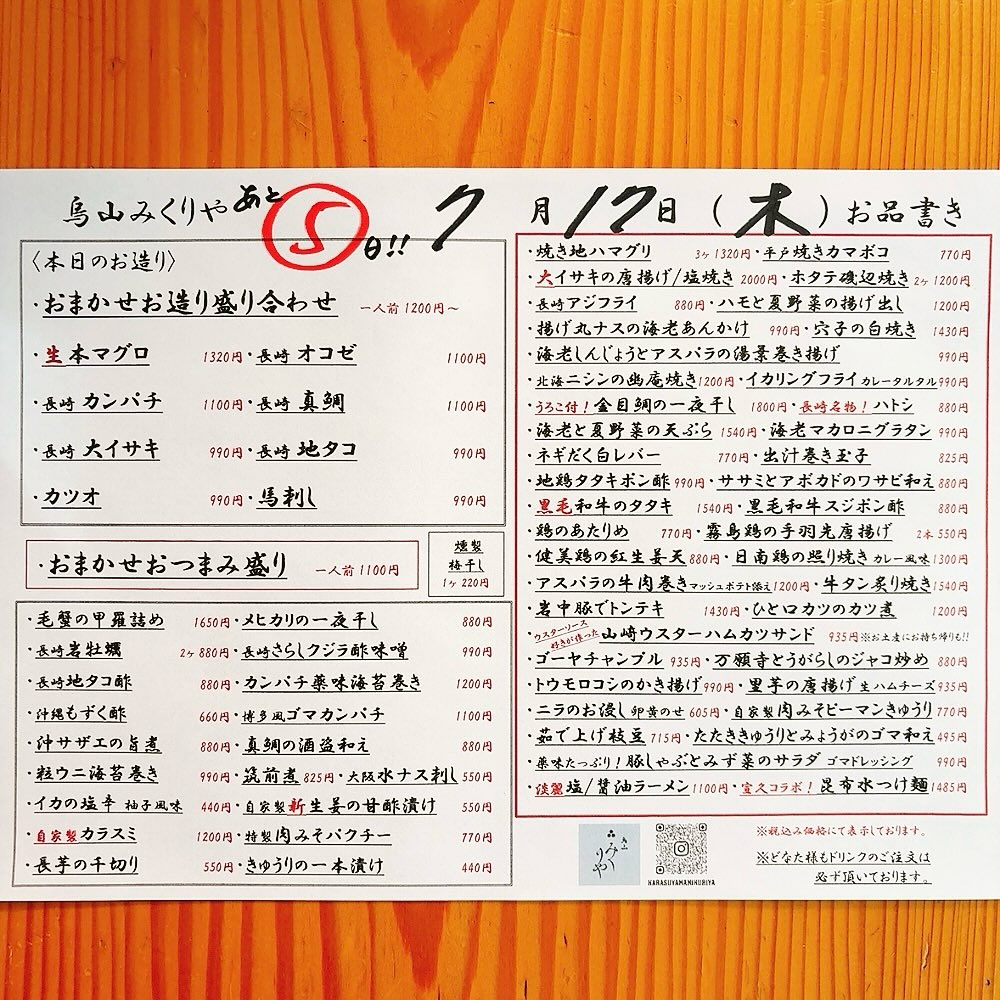 烏山みくりや あと 5 日!! 7月17日(木)お品書き
〈本日のお造り〉
・おまかせお造り盛り合わせ 一人前1200円~
・生 本マグロ 1320円・長崎 オコゼ 1100円
・長崎 カンパチ 1100円・長崎 真鯛 1100円
・長崎 大イサキ 990円・長崎 地タコ 990円
・カツオ 990円・馬刺し 990円
・おまかせおつまみ盛り 一人前1100円
燻製
梅干し
1ヶ220円
・毛蟹の甲羅詰め 1650円・メヒカリの一夜干し 880円
・長崎岩牡蠣 2ヶ880円・長崎さらしクジラ酢味噌 990円
・長崎地タコ酢 880円・カンパチ薬味海苔巻き 1200円
・沖縄もずく酢 660円・博多風ゴマカンパチ 1100円
・沖サザエの旨煮 880円・真鯛の酒盗和え 880円
・粒ウニ海苔巻き 990円・筑前煮 825円・大阪水ナス刺し 550円
・イカの塩辛 柚子風味 440円・自家製新生姜の甘酢漬け 550円
・自家製カラスミ 1200円・特製肉みそパクチー 770円
・長芋の千切り 550円・きゅうりの一本漬け 440円
・焼き地ハマグリ 3ヶ1320円・平戸焼きカマボコ 770円
・大イサキの唐揚げ/塩焼き 2000円・ホタテ磯辺焼き 2ヶ1200円
・長崎アジフライ 880円・ハモと夏野菜の揚げ出し 1200円
・揚げ丸ナスの海老あんかけ 990円・穴子の白焼き 1430円
・海老しんじょうとアスパラの湯景巻き揚げ 990円
・北海ニシンの幽庵焼き1200円・イカリングフライ カレータルタル990円
・うろこ付!金目鯛の一夜干し 1800円・長崎名物!ハトシ 880円
・海老と夏野菜の天ぷら 1540円・海老マカロニグラタン 990円
・ネギだく白レバー 770円・出汁巻き玉子 825円
・地鶏タタキポン酢 990円・ササミとアボカドのワサビ和え 880円
・黒毛和牛のタタキ 1540円・黒毛和牛スジポン酢 880円
・鶏のあたりめ 770円・霧島鶏の手羽先唐揚げ 2本550円
・健美鶏の紅生姜天 880円・日南鶏の照り焼き カレー風味 1300円
・アスパラの牛肉巻きマッシュポテト添え1200円・牛タン炙り焼き1540円
・岩中豚でトンテキ 1430円・ひと口カツのカツ煮 1200円
・ウスターソース好きが作った 山崎ウスターハムカツサンド 935円※お土産にお持ち帰りも!!
・ゴーヤチャンプル 935円・万願寺とうがらしのジャコ炒め 880円
・トウモロコシのかき揚げ990円・里芋の唐揚げ 生ハムチーズ935円
・ニラのお浸し 卵黄のせ 605円・自家製肉みそピーマンきゅうり770円
・茹で上げ枝豆 715円・たたききゅうりとみょうがのゴマ和え 495円
・薬味たっぷり!豚しゃぶとみず菜のサラダ ゴマドレッシング 990円
・淡麗 塩/醤油ラーメン1100円・宣久コラボ!昆布水つけ麺1485円
みくりや
KARASUYAMAMIKURIYA
※税込み価格にて表示しております。
※どなた様もドリンクのご注文は
必ず頂いております。